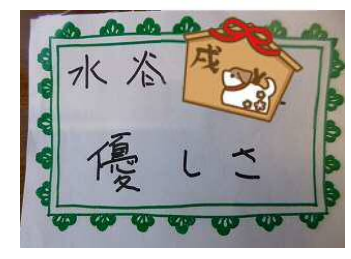 水谷
戌
優しさ